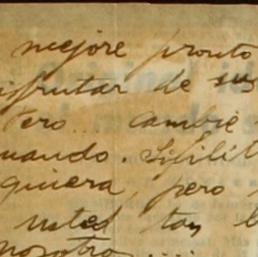 mejore pronto
isfrutar de sus
tero... cambie
uando. Sifilit
quiera, pero
usted tan b
nosotro....